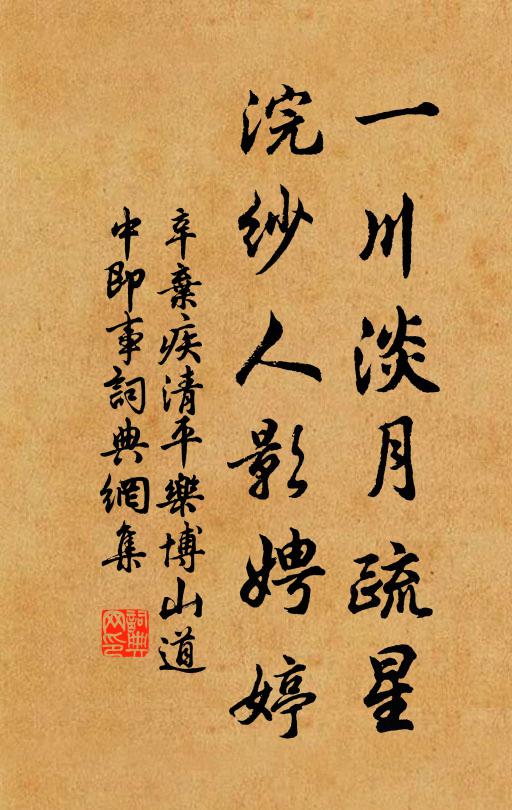 一川淡月疏星
浣紗人影娉婷
辛棄疾清平樂博山道
中即事詞典網集
詞典網印